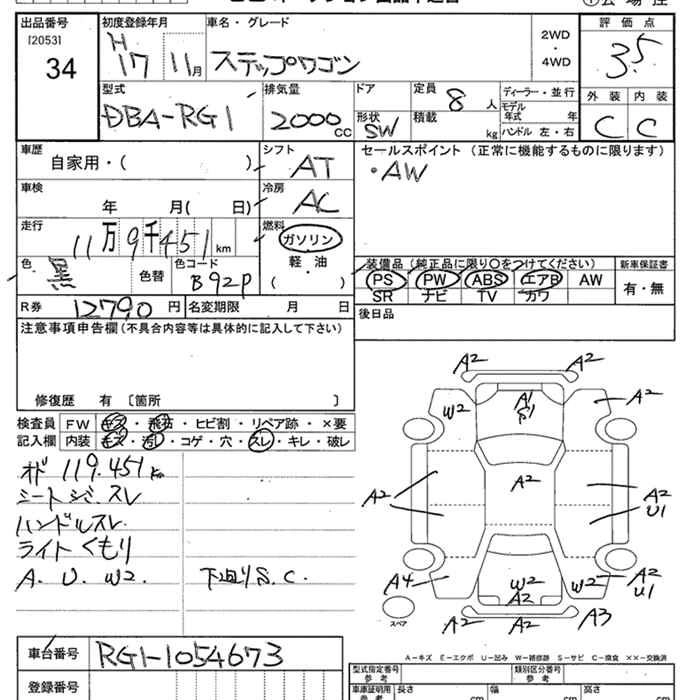 出品番号
[2053]
34
初度登録年月
H 17 11月
車名・グレード
ステップワゴン
2WD
・
4WD
評価点
3.5
外装 内装
C C
型式
DBA-RG1
排気量
2000 CC
ドア
形状
SW
定員
8 人
積載
kg
ディーラー・並行
モデル
年式 年
ハンドル 左・右
車歴
自家用・( )
シフト
AT
セールスポイント(正常に機能するものに限ります)
・AW
車検
年 月( 日)
冷房
AC
走行
11万9千451km
燃料
ガソリン
軽・油
( )
色
黒
色替
色コード
B92P
装備品(純正品に限り○をつけてください)
PS PW ABS エアB AW
SR ナビ TV カワ
新車保証書
有・無
R券 12790 円
名変期限 月 日
後日品
注意事項申告欄(不具合内容等は具体的に記入して下さい)
修復歴 有 〔箇所 〕
検査員 FW キズ・飛石・ヒビ割・リペア跡・×要
記入欄 内装 キズ・汚れ・コゲ・穴・スレ・キレ・破レ
オド 119.451km
シートシミ スレ
ハンドルスレ
ライトくもり
A. U. W2. 下回りS.C.
A2 A2
W2 A1 A2
S1
A2 A2 A2
U1
A4 W2 W2 A2
A2 U1
A2 A2 A3
スペア
A-キズ E-エクボ U-凹み W-補修跡 S-サビ C-腐食 ××-交換済
車台番号 RG1-1054673
登録番号
型式指定番号
参考
類別区分番号
参考
車庫証明用
参考
長さ cm
幅 cm
高さ cm